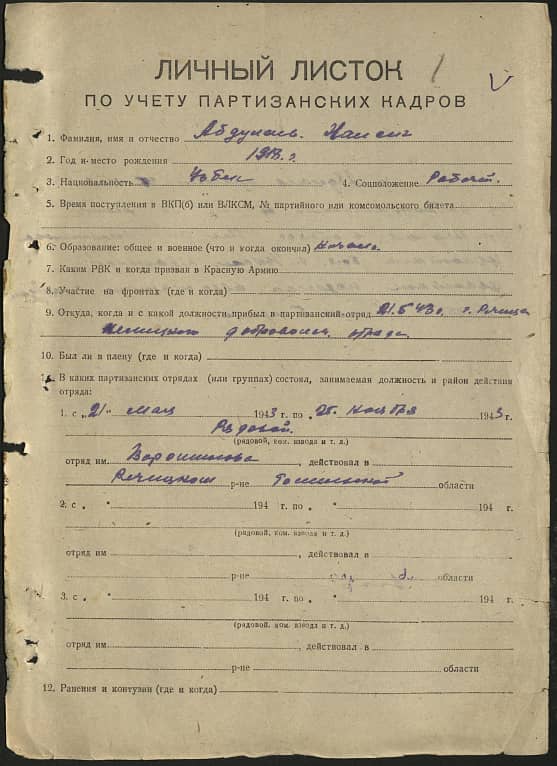 ЛИЧНЫЙ ЛИСТОК
ПО УЧЕТУ ПАРТИЗАНСКИХ КАДРОВ
1. Фамилия, имя и отчество
2. Год и место рождения 1918 г.
3. Национальность Узбек 4. Соцположение Рабоч.
5. Время поступления в ВКП(б) или ВЛКСМ, № партийного или комсомольского билета
6. Образование: общее и военное (что и когда окончил)
7. Каким РВК и когда призван в Красную Армию
8. Участие на фронтах (где и когда)
9. Откуда, когда и с какой должности прибыл в партизанский отряд 21.5.43 г. г. Речица
немецкого доброволь. отряда
10. Был ли в плену (где и когда)
11. В каких партизанских отрядах (или группах) состоял, занимаемая должность и район действия
отряда:
1. с „21“ мая 1943 г. по „25“ ноября 1943 г.
Рядовой
(рядовой, ком. взвода и т. д.)
отряд им. Ворошилова, действовал в
Речицком р-не Гомельской области
2. с „ “ 194 г. по „ “ 194 г.
(рядовой, ком. взвода и т. д.)
отряд им , действовал в
р-не области
3. с „ “ 194 г. по „ “ 194 г.
(рядовой, ком. взвода и т. д.)
отряд им. , действовал в
р-не области
12. Ранения и контузии (где и когда)